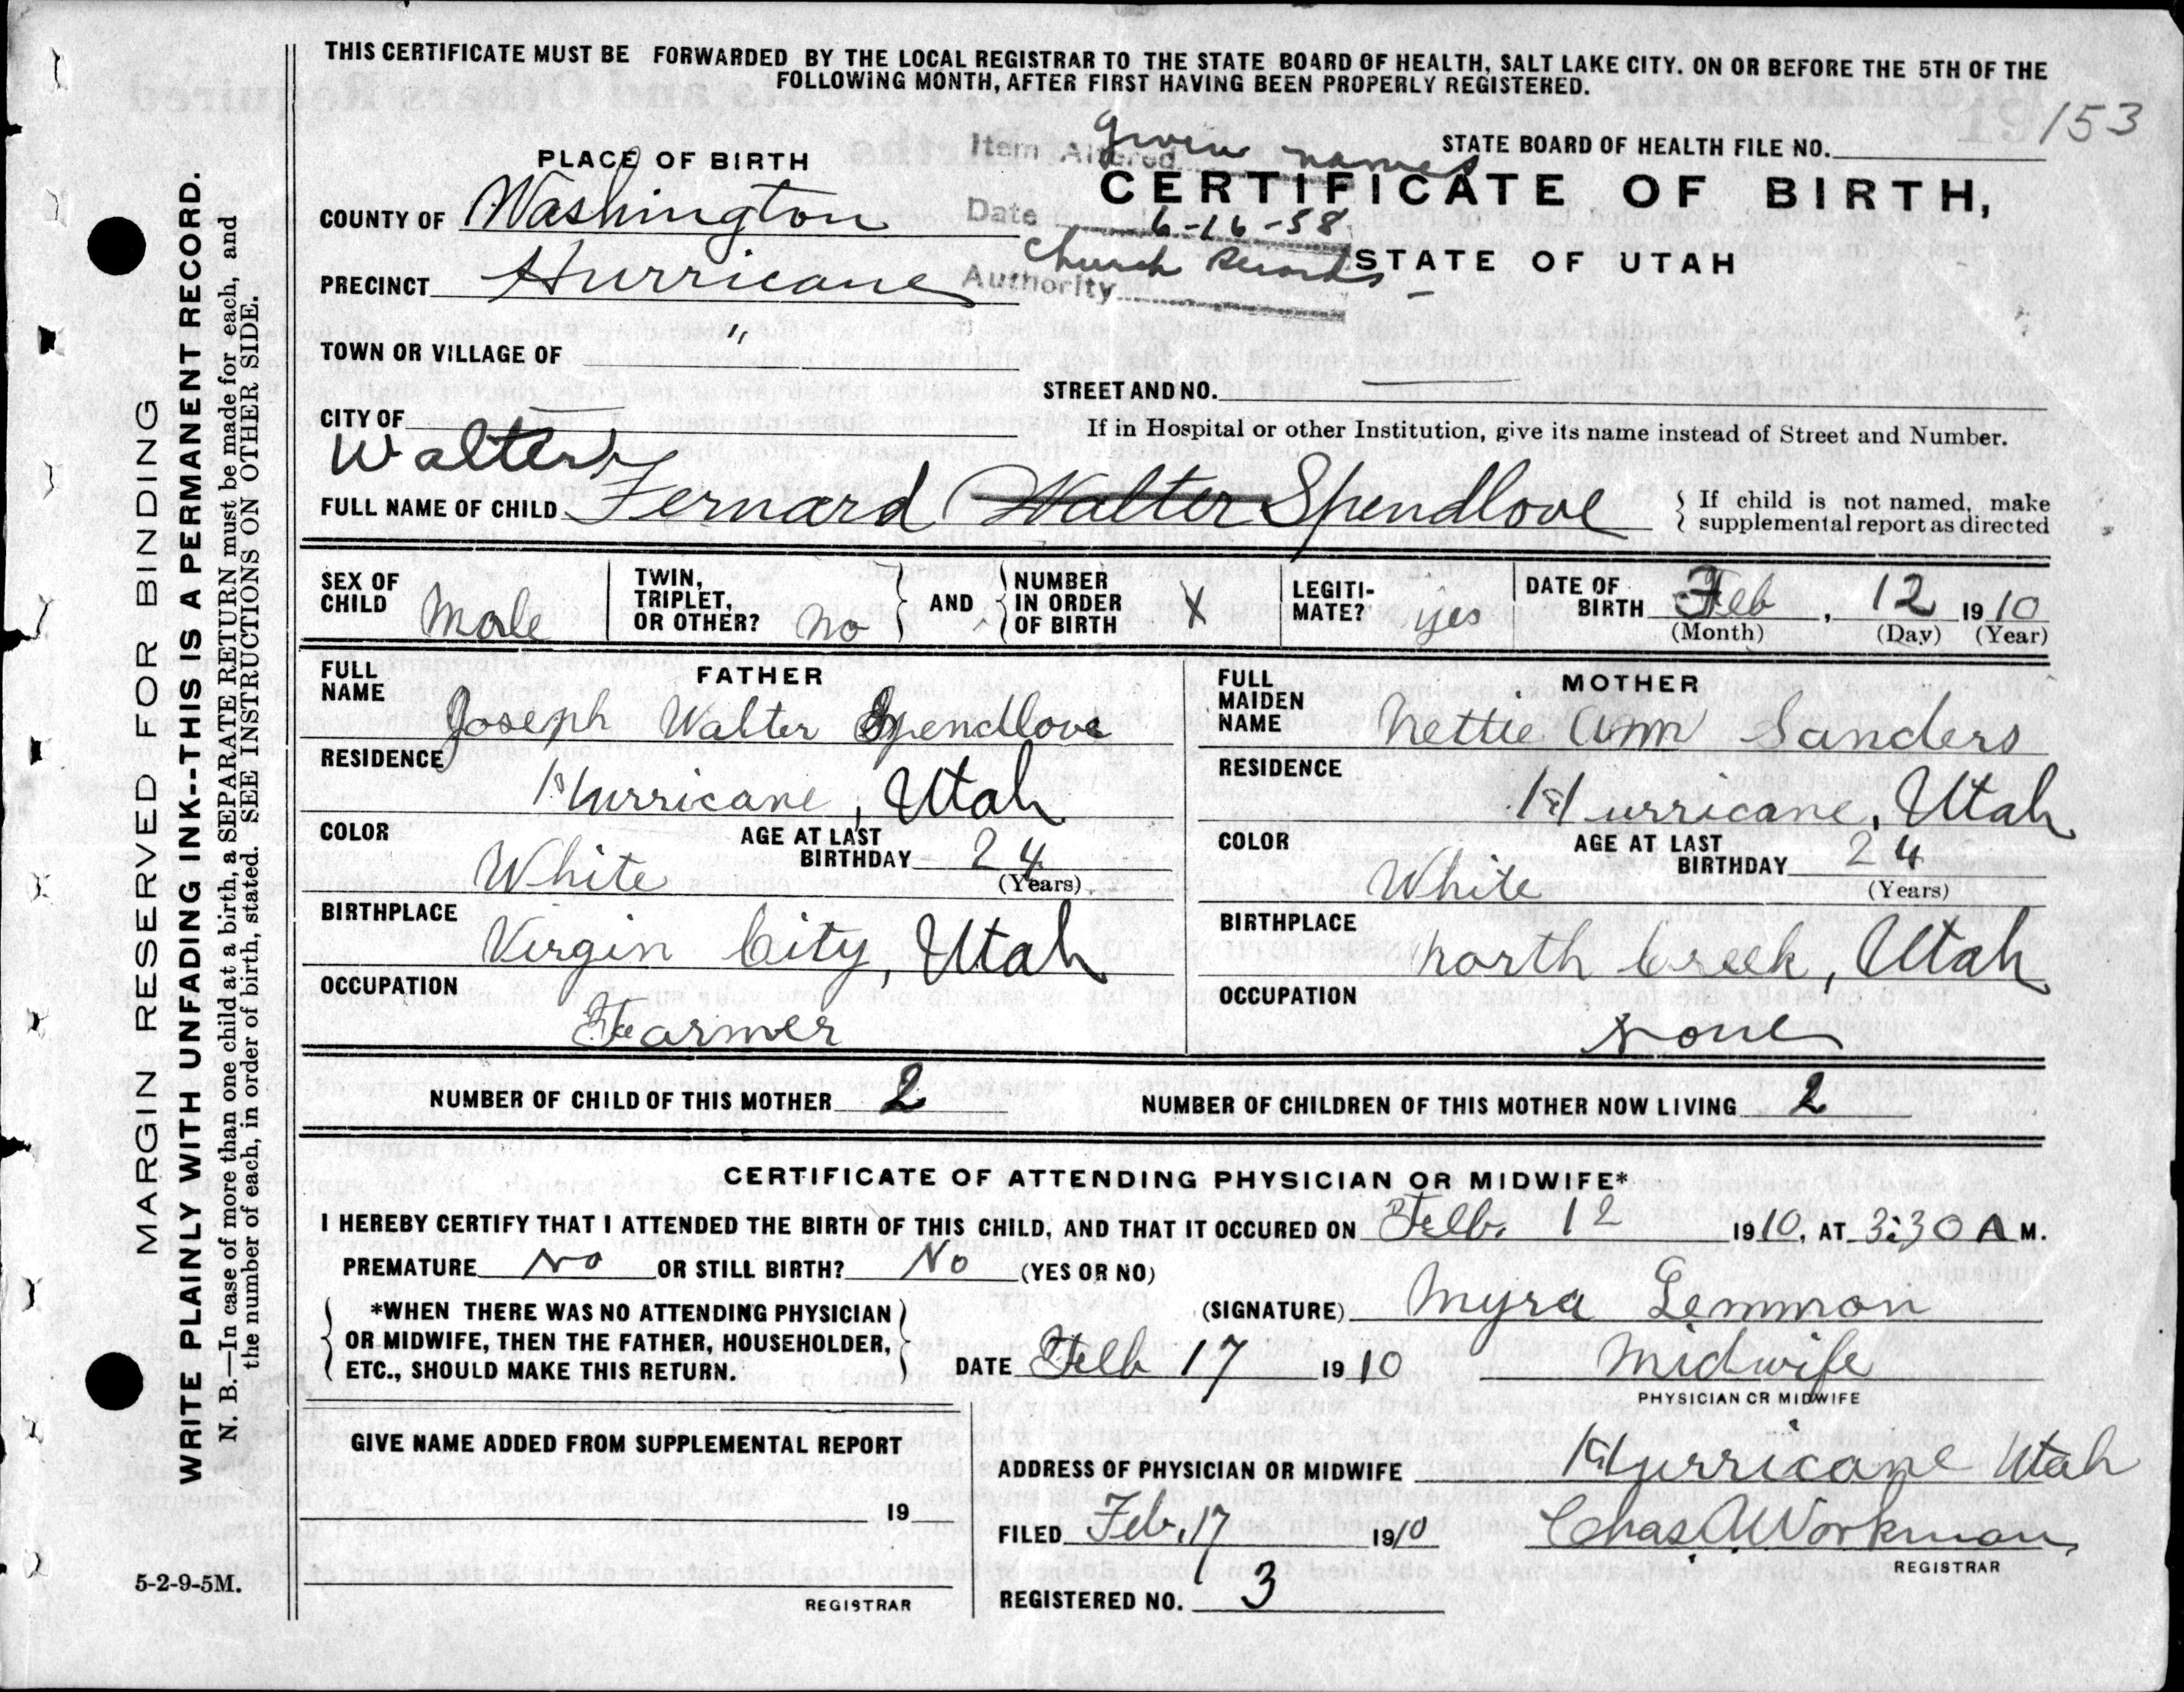 THIS CERTIFICATE MUST BE FORWARDED BY THE LOCAL REGISTRAR TO THE STATE BOARD OF HEALTH, SALT LAKE CITY. ON OR BEFORE THE 5TH OF THE
FOLLOWING MONTH, AFTER FIRST HAVING BEEN PROPERLY REGISTERED.
153
STATE BOARD OF HEALTH FILE NO.
Item Altered given names
PLACE OF BIRTH
CERTIFICATE OF BIRTH,
COUNTY OF Washington
Date 6-16-58
STATE OF UTAH
PRECINCT Hurricane
Authority Church Records
TOWN OR VILLAGE OF "
STREET AND NO.
CITY OF
If in Hospital or other Institution, give its name instead of Street and Number.
Walter
FULL NAME OF CHILD Fernard Walter Spendlove
If child is not named, make
supplemental report as directed
SEX OF CHILD Male
TWIN, TRIPLET, OR OTHER? no
AND
NUMBER IN ORDER OF BIRTH X
LEGITIMATE? yes
DATE OF BIRTH Feb, 12 1910
(Month) (Day) (Year)
FATHER
FULL NAME Joseph Walter Spendlove
RESIDENCE Hurricane, Utah
COLOR White
AGE AT LAST BIRTHDAY 24
(Years)
BIRTHPLACE Virgin City, Utah
OCCUPATION Farmer
MOTHER
FULL MAIDEN NAME Nettie Ann Sanders
RESIDENCE Hurricane, Utah
COLOR White
AGE AT LAST BIRTHDAY 24
(Years)
BIRTHPLACE North Creek, Utah
OCCUPATION None
NUMBER OF CHILD OF THIS MOTHER 2
NUMBER OF CHILDREN OF THIS MOTHER NOW LIVING 2
CERTIFICATE OF ATTENDING PHYSICIAN OR MIDWIFE*
I HEREBY CERTIFY THAT I ATTENDED THE BIRTH OF THIS CHILD, AND THAT IT OCCURED ON Feb. 12 1910, AT 3:30 A M.
PREMATURE No OR STILL BIRTH? No (YES OR NO)
*WHEN THERE WAS NO ATTENDING PHYSICIAN
OR MIDWIFE, THEN THE FATHER, HOUSEHOLDER,
ETC., SHOULD MAKE THIS RETURN.
(SIGNATURE) Myra Lemmon
DATE Feb 17 1910
Midwife
PHYSICIAN OR MIDWIFE
GIVE NAME ADDED FROM SUPPLEMENTAL REPORT
19
REGISTRAR
ADDRESS OF PHYSICIAN OR MIDWIFE Hurricane Utah
FILED Feb. 17 1910
Chas A Workman
REGISTRAR
REGISTERED NO. 3
5-2-9-5M.
MARGIN RESERVED FOR BINDING
WRITE PLAINLY WITH UNFADING INK--THIS IS A PERMANENT RECORD.
N. B.—In case of more than one child at a birth, a SEPARATE RETURN must be made for each, and
the number of each, in order of birth, stated. SEE INSTRUCTIONS ON OTHER SIDE.